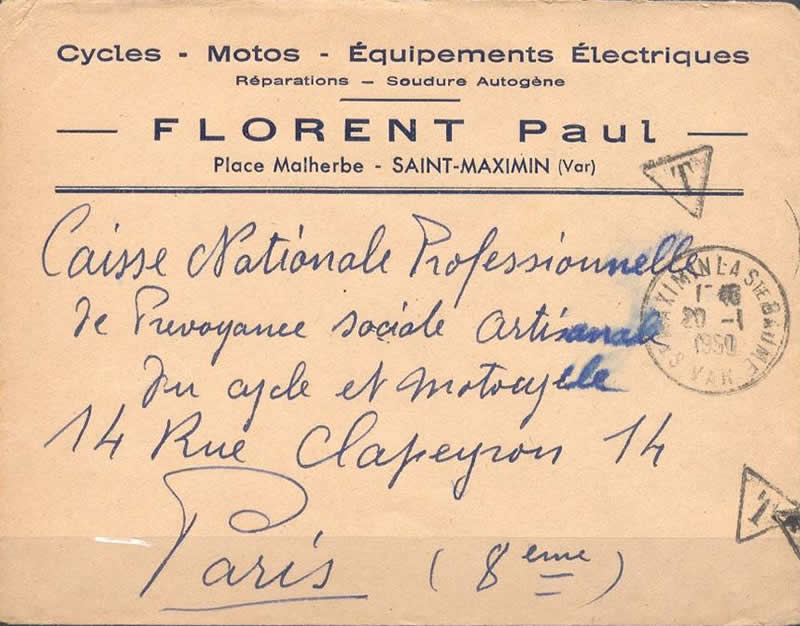 Cycles - Motos - Équipements Électriques
Réparations — Soudure Autogène
FLORENT Paul
Place Malherbe - SAINT-MAXIMIN (Var)
T
Caisse Nationale Professionnelle
de Prevoyance sociale artisanale
du cycle et motocycle
14 Rue Clapeyron 14
Paris (8eme)
ST MAXIMIN LA STE BAUME
20 -1
1950
VAR
T